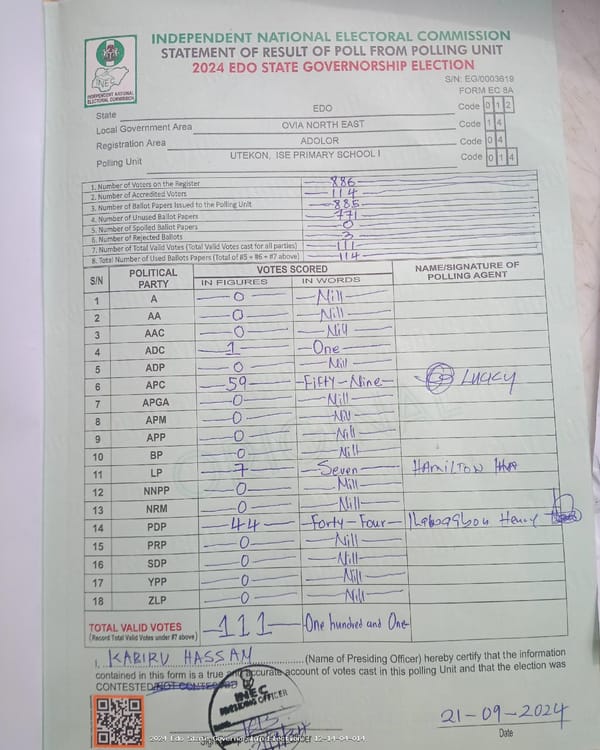 INDEPENDENT NATIONAL ELECTORAL COMMISSION
STATEMENT OF RESULT OF POLL FROM POLLING UNIT
2024 EDO STATE GOVERNORSHIP ELECTION
S/N: EG/0003619
FORM EC 8A
INEC
INDEPENDENT NATIONAL
ELECTORAL COMMISSION
State EDO Code 0 1 2
Local Government Area OVIA NORTH EAST Code 1 4
Registration Area ADOLOR Code 0 4
Polling Unit UTEKON, ISE PRIMARY SCHOOL I Code 0 1 4
1. Number of Voters on the Register 886
2. Number of Accredited Voters 114
3. Number of Ballot Papers Issued to the Polling Unit 885
4. Number of Unused Ballot Papers 771
5. Number of Spoiled Ballot Papers 0
6. Number of Rejected Ballots 3
7. Number of Total Valid Votes (Total Valid Votes cast for all parties) 111
8. Total Number of Used Ballots Papers (Total of #5 + #6 + #7 above) 114
S/N POLITICAL PARTY VOTES SCORED NAME/SIGNATURE OF POLLING AGENT
IN FIGURES IN WORDS
1 A 0 Nill
2 AA 0 Nill
3 AAC 0 Nill
4 ADC 1 One
5 ADP 0 Nill
6 APC 59 Fifty-Nine Lucky
7 APGA 0 Nill
8 APM 0 Nill
9 APP 0 Nill
10 BP 0 Nill
11 LP 7 Seven HAMILTON
12 NNPP 0 Nill
13 NRM 0 Nill
14 PDP 44 Forty-Four Henry
15 PRP 0 Nill
16 SDP 0 Nill
17 YPP 0 Nill
18 ZLP 0 Nill
TOTAL VALID VOTES 111 One hundred and One
(Record Total Valid Votes under #7 above)
I, KABIRU HASSAN (Name of Presiding Officer) hereby certify that the information
contained in this form is a true and accurate account of votes cast in this polling Unit and that the election was
CONTESTED/NOT CONTESTED
INEC
PRESIDING OFFICER
21-09-2024
Date
2024 Edo State Governorship Election 12-14-04-014